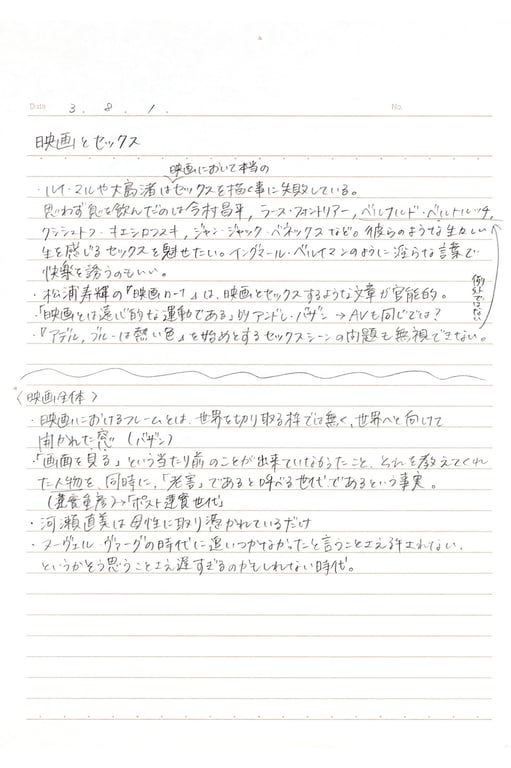 Date 3 . 8 . 1 . No.
映画とセックス
映画において本当の
・ルイ・マルや大島渚はセックスを描く事に失敗している。
思わず息を飲んだのは今村昌平, ラース・フォントリアー, ベルナルド・ベルトルッチ,
クシシュトフ・キェシロフスキ, ジャン・ジャック・ベネックスなど。彼らのような生々しい
生を感じるセックスを魅せたい。イングマール・ベルイマンのように淫らな言葉で
快楽を誘うのもいい。
例外ではない
・松浦寿輝の『映画n-1』は、映画とセックスするような文章が官能的。
・「映画とは遠心的な運動である」byアンドレ・バザン → AVも同じでは?
・『アデル, ブルーは熱い色』を始めとするセックスシーンの問題も無視できない。
〈映画全体〉
・映画におけるフレームとは、世界を切り取る枠では無く、世界へと向けて
開かれた窓 (バザン)
・「画面を見る」という当たり前のことが出来ていなかったこと、それを教えてくれ
た人物を、同時に、「老害」であると呼べる世代であるという事実。
(蓮實重彦)→「ポスト蓮實世代」
・河瀬直美は母性に取り憑かれているだけ
・ヌーヴェル・ヴァーグの時代に追いつかなかったと言うことさえ許されない、
というかそう思うことさえ遅すぎるのかもしれない時代。